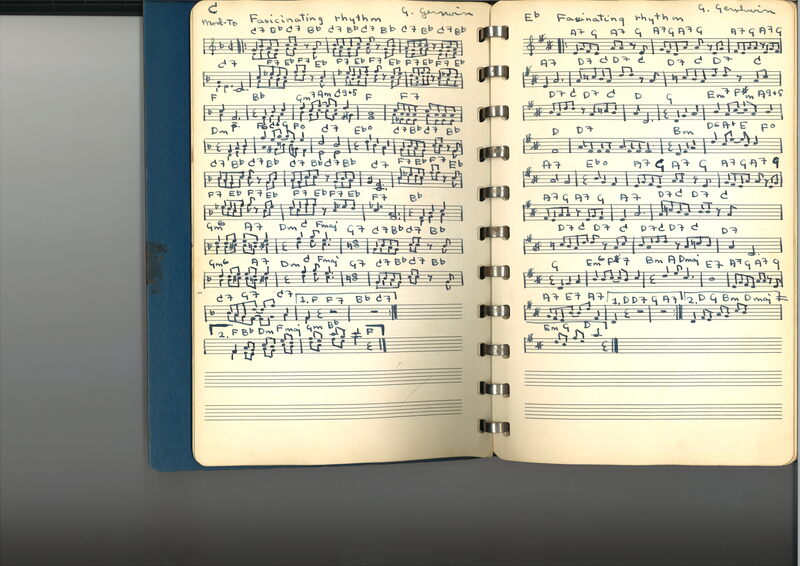 C
Fasicinating rhythm G. Gerswin
C7 Bb C7 Bb C7 Bb C7 Bb C7 Bb C7 Bb
C7 F7 Eb F7 Eb F7 Eb F7 Eb F7 Eb F7 Eb
F Bb Gm7 Am C9+5 F F7
Dm C7 Ebo C7 Bb C7 Bb
C7 Bb C7 Bb C7 Bb C7 F7 Eb F7 Eb
F7 Eb F7 Eb F7 Eb F7 Eb F7 Bb
Gm6 A7 Dm C Fmaj G7 C7 Bb C7 Bb
Gm6 A7 Dm C Fmaj G7 C7 Bb C7 Bb
C7 G7 C7 1. F F7 Bb C7
2. F Bb Dm Fmaj Gm Bb F
Eb Fassinating rhythm G. Gershwin
A7 G A7 G A7 G A7 G A7 G A7 G
A7 D7 C D7 C D7 C D7 C
D7 C D7 C D G Em7 F#m A9+5
D D7 Bm E Fo
A7 Ebo A7 G A7 G A7 G A7 G
A7 G A7 G A7 D7 C D7 C
D7 C D7 C D7 C D7 C D7
G Em6 F#7 Bm A Dmaj E7 A7 G A7 G
A7 E7 A7 1. D D7 G A7 2. D G Bm Dmaj
Em G D